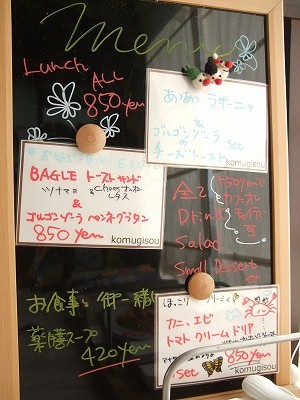 menu
Lunch
ALL
850yen
あつあつ ラザーニャ
&
ゴルゴンゾーラ
の
チーズトースト
set
komugisou
BAGLE トーストサンド
ツナマヨ & cheeseオニオン
レタス
&
ゴルゴンゾーラ ペンネグラタン
850yen
komugisou
全て
Drink
Salad
Small Dessert
付
+50yenで
カフェオレ
チャイに
お食事と 御一緒に
薬膳スープ
420yen
ほっこり クリーミィ
カニ、エビ
トマト クリーム ドリア
set
850yen
komugisou